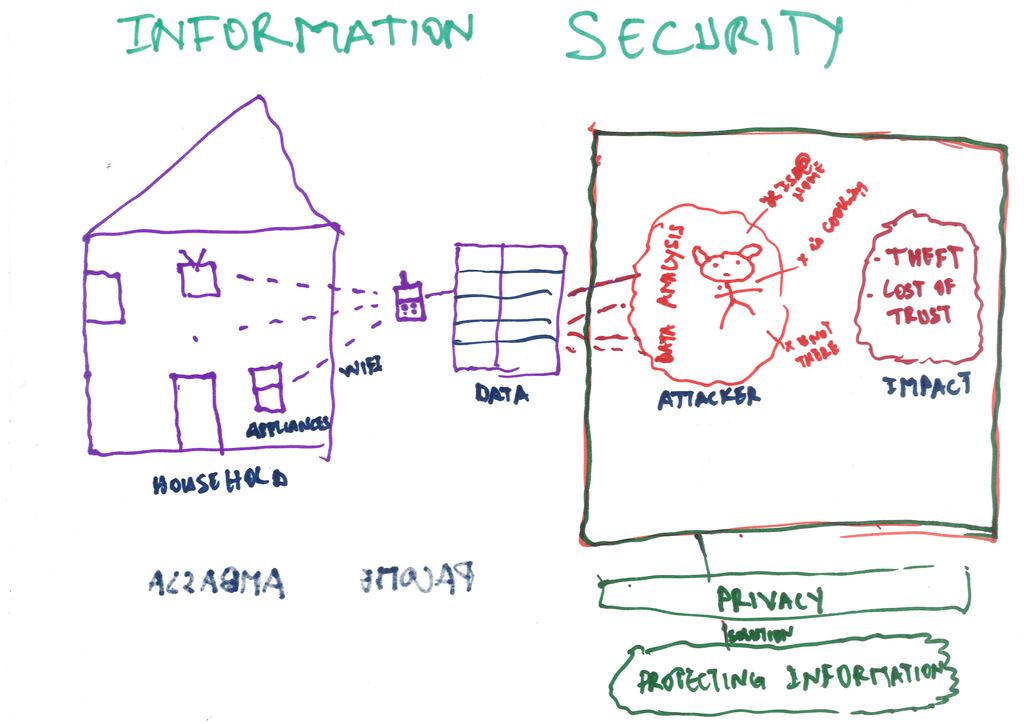 INFORMATION SECURITY
* IS @
HOME
* is COOKING
DATA ANALYSIS
- THEFT
- LOST OF
TRUST
* IS NOT
THERE
WIFI
DATA
ATTACKER
IMPACT
APPLIANCES
HOUSEHOLD
PRIVACY
SOLUTION
PROTECTING INFORMATION